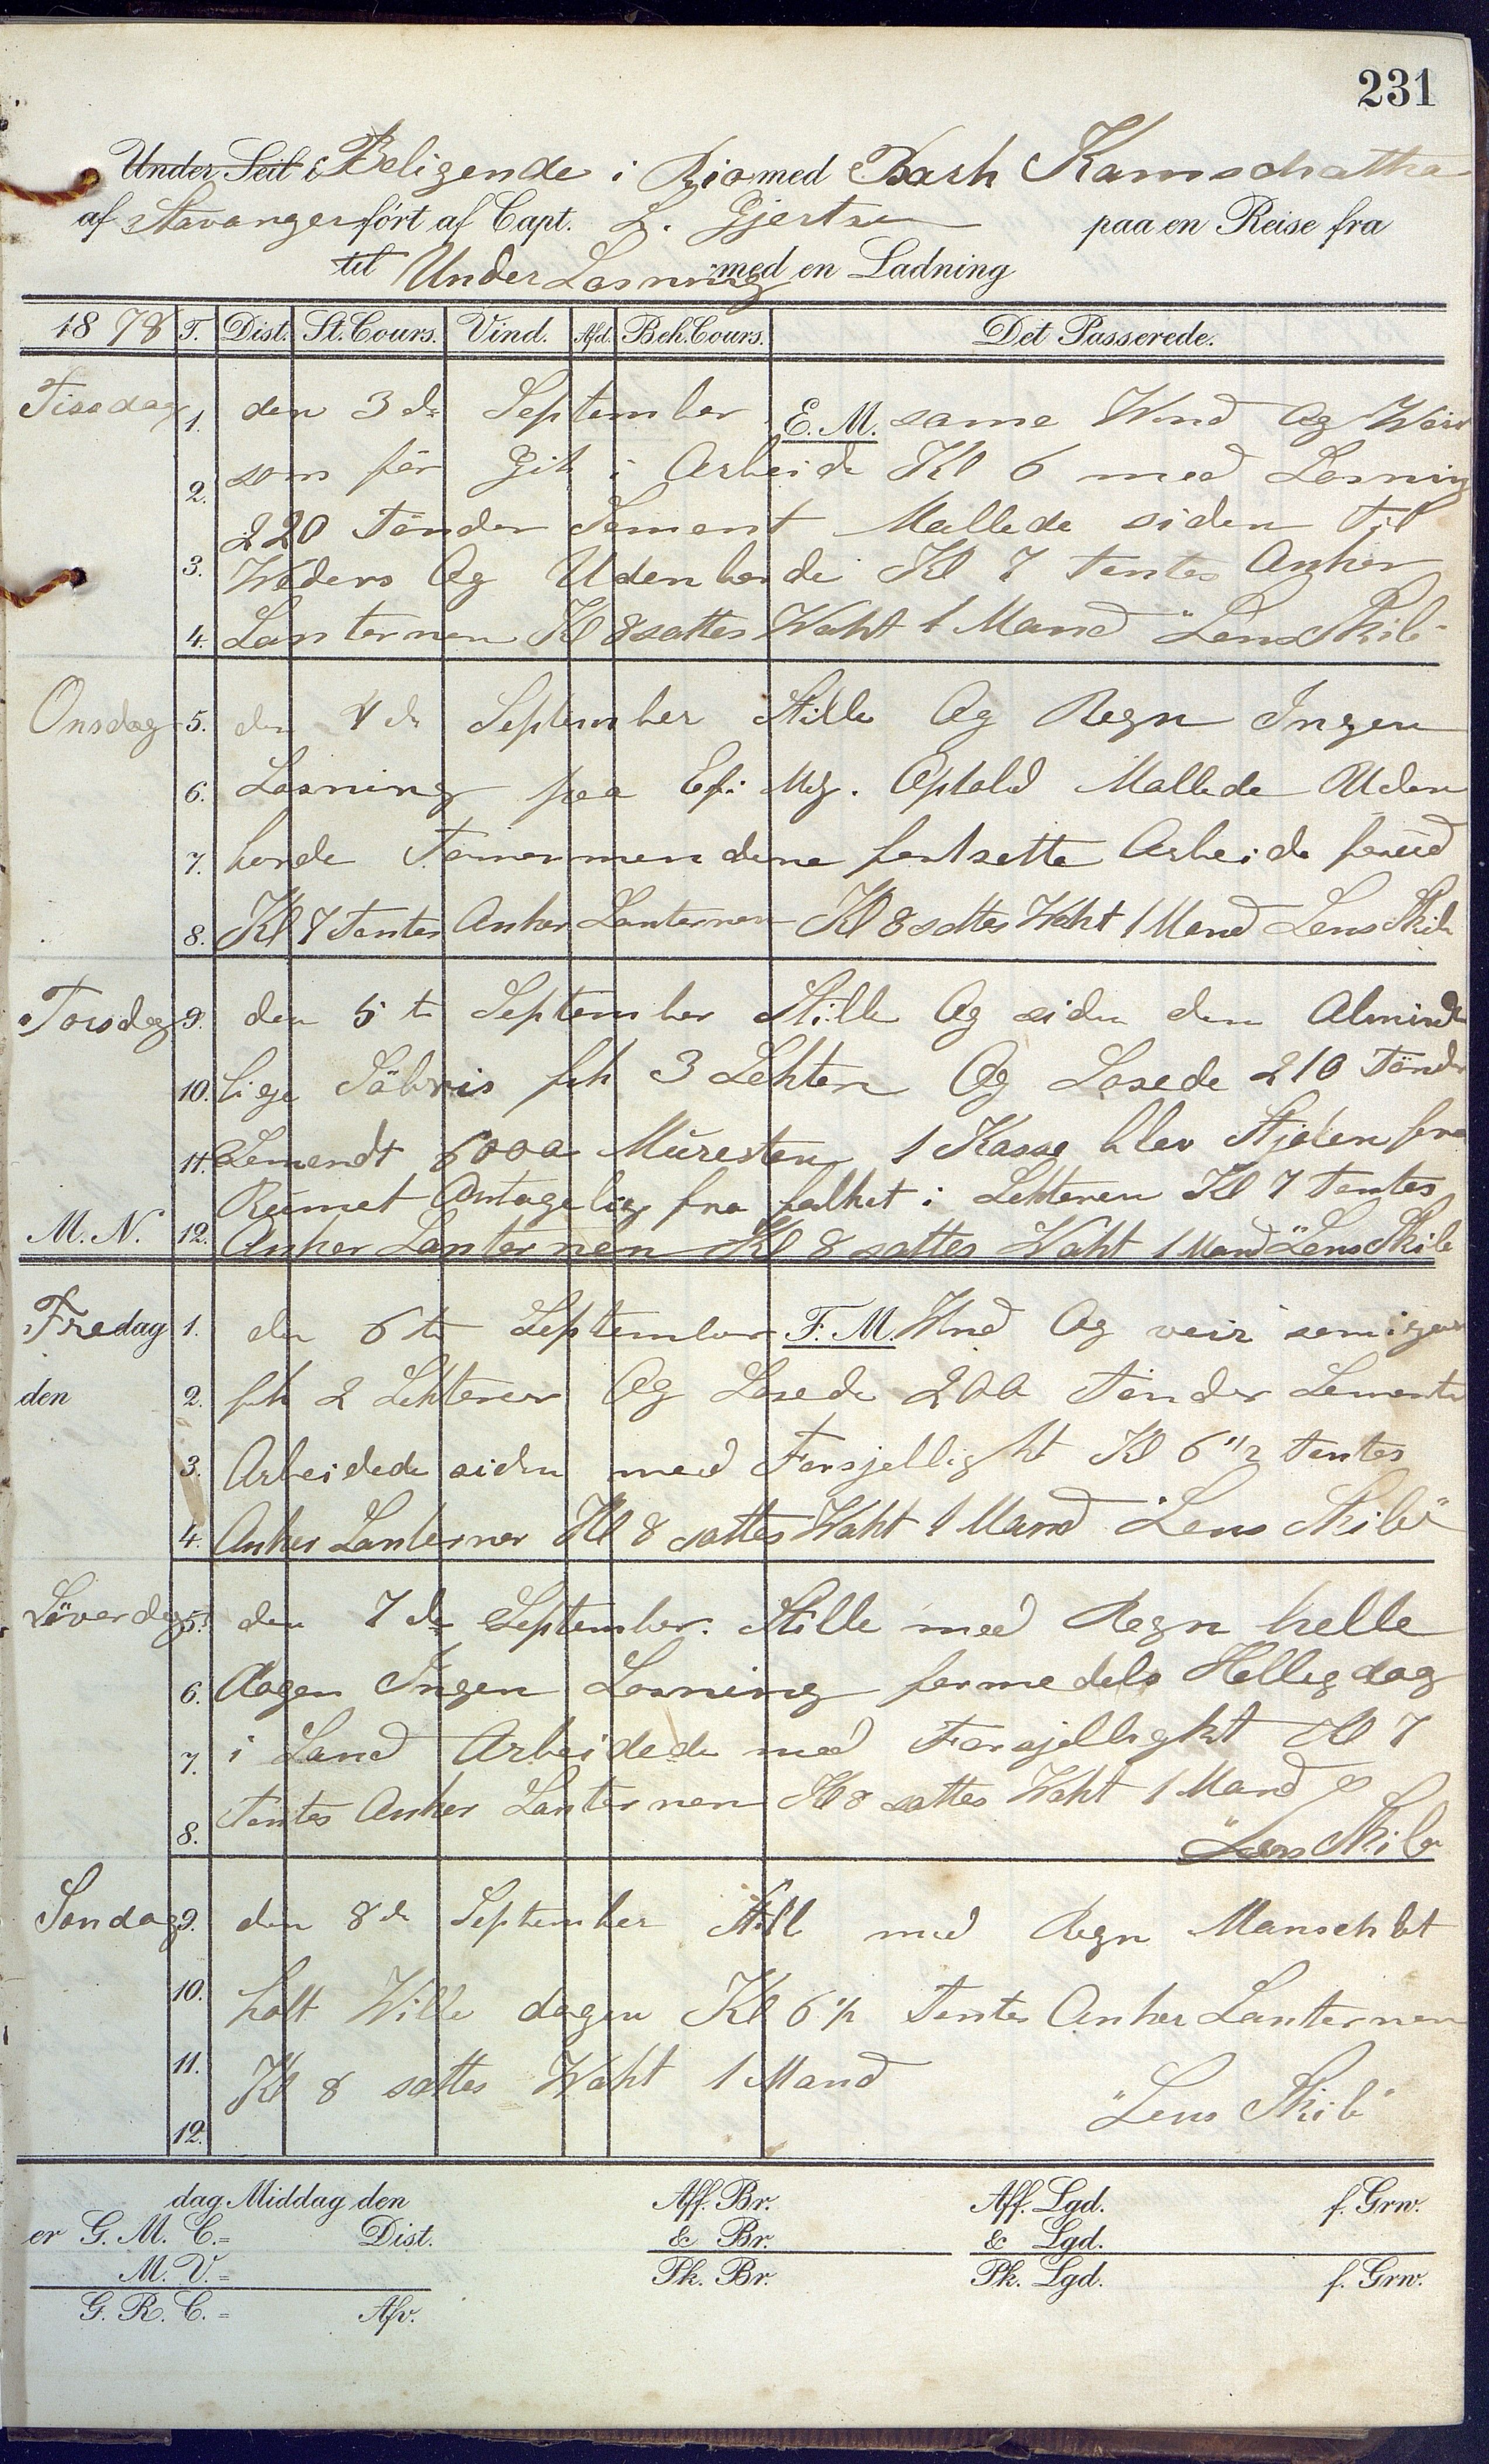 231
Under Seil i Beligende i Rio med Bark Kamschatka
af Stavanger ført af Capt. L. Gjertsen paa en Reise fra
til Under Losning med en Ladning
1878 T. Dist. St. Cours. Vind. Afd. Beh. Cours. Det Passerede.
Tissdag 1. den 3de September E. M. same Wind Og Weir
2. som før Gik i Arbeide Kl 6 med Losning
220 Tønder Sement Mallede siden Til
3. Weders Og Udenborde Kl 7 tentes Anker
4. Lanternen Kl 8 sattes Waht 1 Mand "Lens Skib"
Onsdag 5. den 4de September Stille Og Regn Ingen
6. Losning paa Eft Mg. Ophold Mallede Uden
7. borde Tømermendene fortsette Arbeide
8. Kl 7 Tentes Anker Lanternen Kl 8 sattes Waht 1 Mand Lens Skib
Torsdag 9. den 5te September Stille Og siden den Almind
10. lige Söbris fik 3 Lekter Og Losede 210 Tönder
11. Semendt 6000 Müresten 1 Kasse blev Stjolen fra
Rümet Antagelig fra folket i Lekteren Kl 7 tentes
M. N. 12. Anker Lanternen Kl 8 sattes Waht 1 Mand "Lens Skib
Fredag 1. den 6te September F. M. Wind Og veir som igaar
den 2. fik 2 Lekterer Og Losede 200 Tønder Sement
3. Arbeidede siden med Forsjelligt Kl 6 1/2 tentes
4. Anker Lanternen Kl 8 sattes Waht 1 Mand "Lens Skib"
Löverdag 5. den 7de September. Stille med Regn helle
6. dagen Ingen Losning formedels Helligdag
7. i Land Arbeidede med Forsjelligkt Kl 7
8. tentes Anker Lanternen Kl 8 sattes Waht 1 Mand
"Lens Skib
Søndag 9. den 8de September Still med Regn Manschbt
10. holt Wille dagen Kl 6 1/2 Tentes Anker Lanternen
11. Kl 8 sattes Waht 1 Mand
12. "Lens Skib"
dag Middag den Aff. Br. Aff. Lgd. f. Grw.
er G. M. C. = Dist. & Br. & Lgd.
M. V. = Pk. Br. Pk. Lgd. f. Grw.
G. R. C. = Afv.